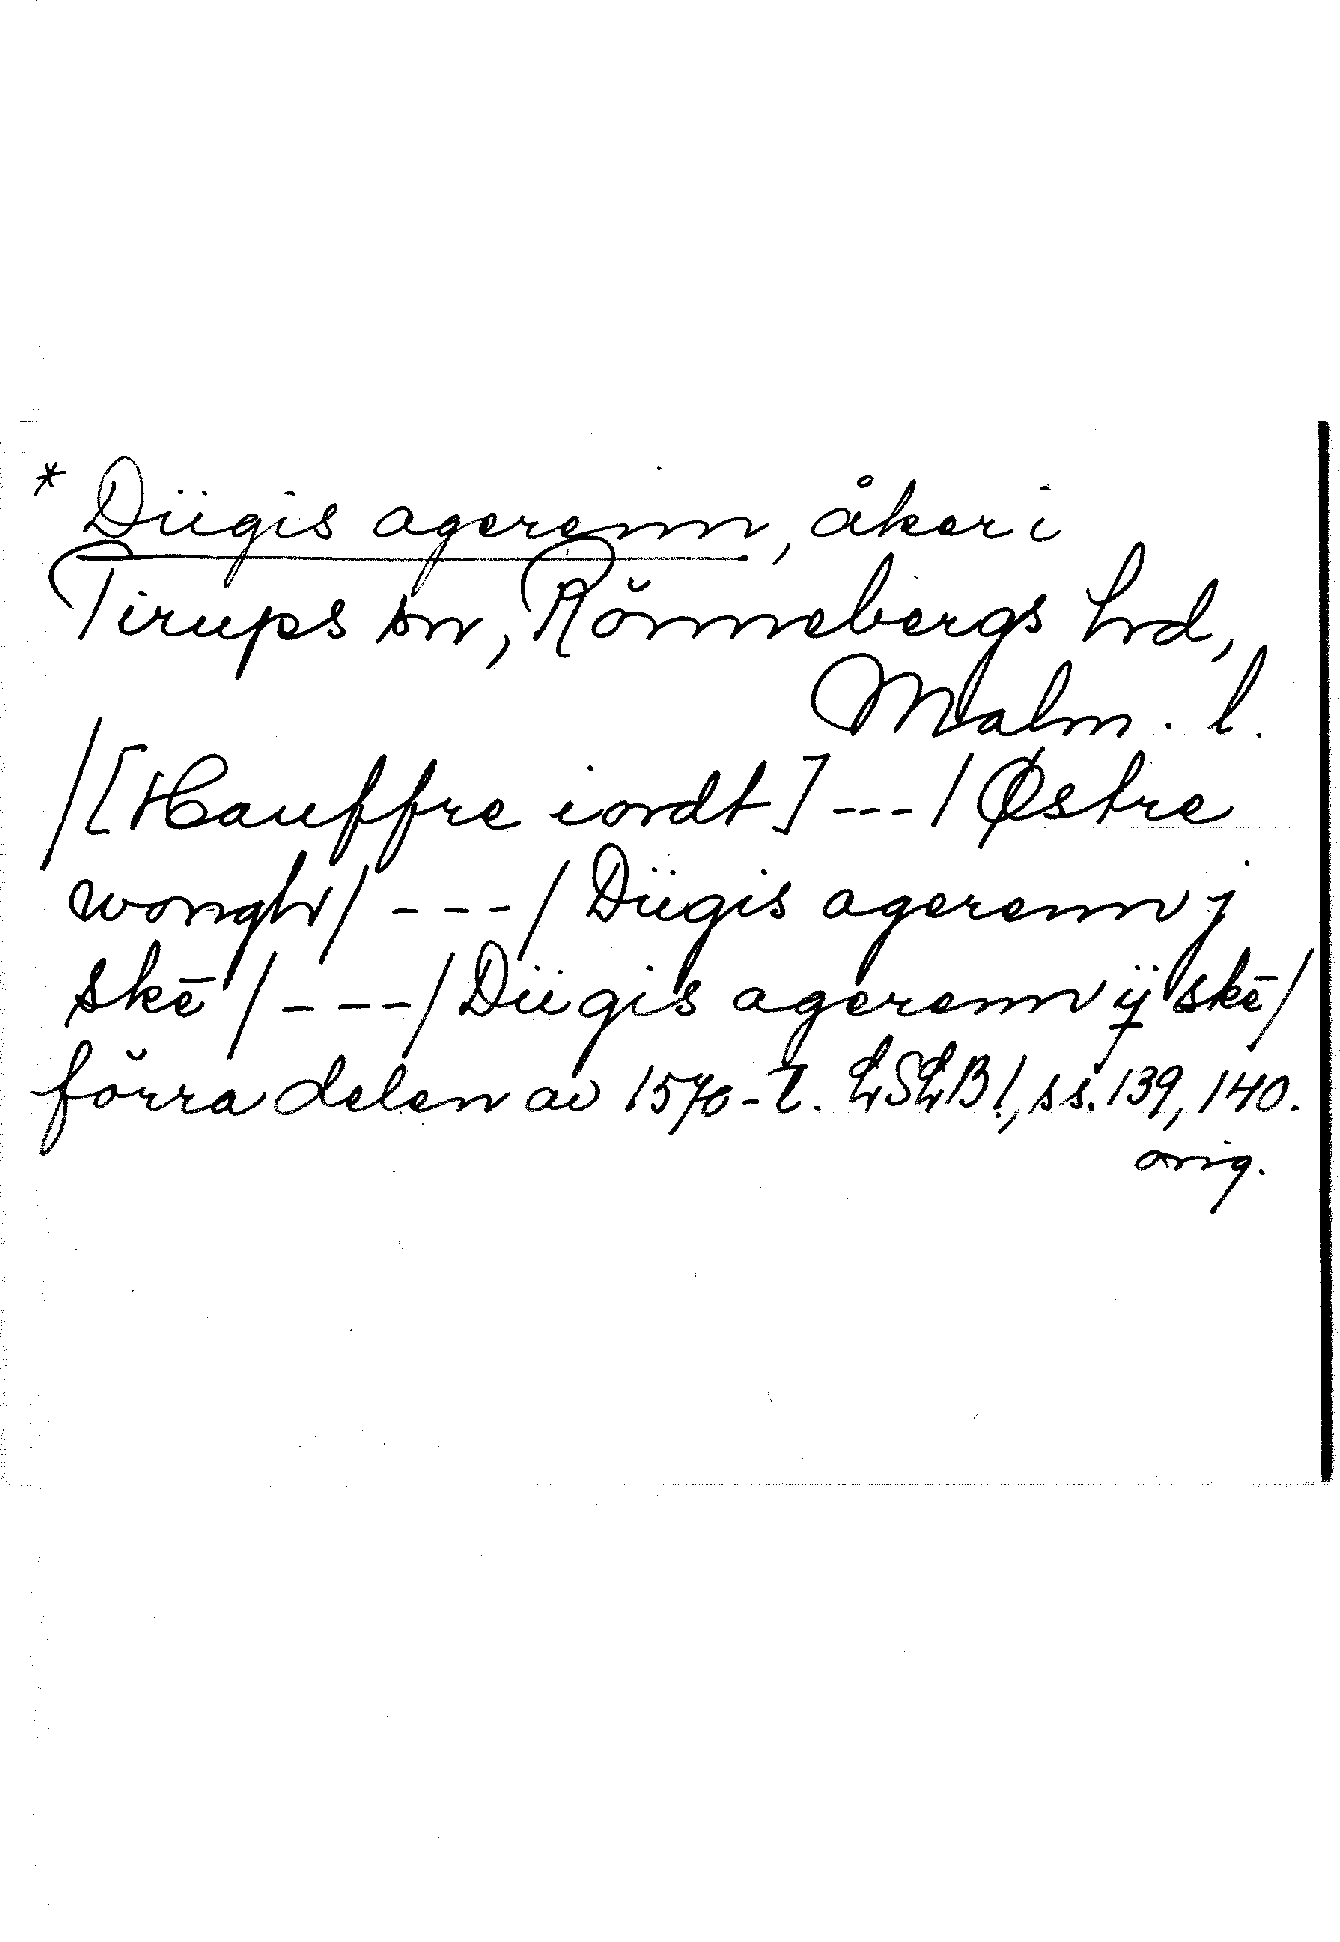 * Dügis agerenn, åker i
Tirups sn, Rönnebergs hd,
Malm. l.
/[Hauffre iordt] ---/ Østre
wongh/ ---/ Dügis agerenn j
skē /---/ Dügis agerenn ij skē/
förra delen av 1570-t. LSLB!, ss. 139, 140.
orig.